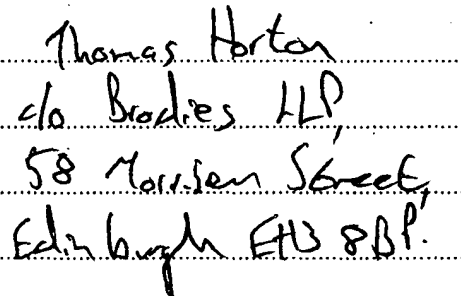 Thomas Horton
c/o Brodies LLP,
58 Morrison Street,
Edinburgh EH3 8BP.